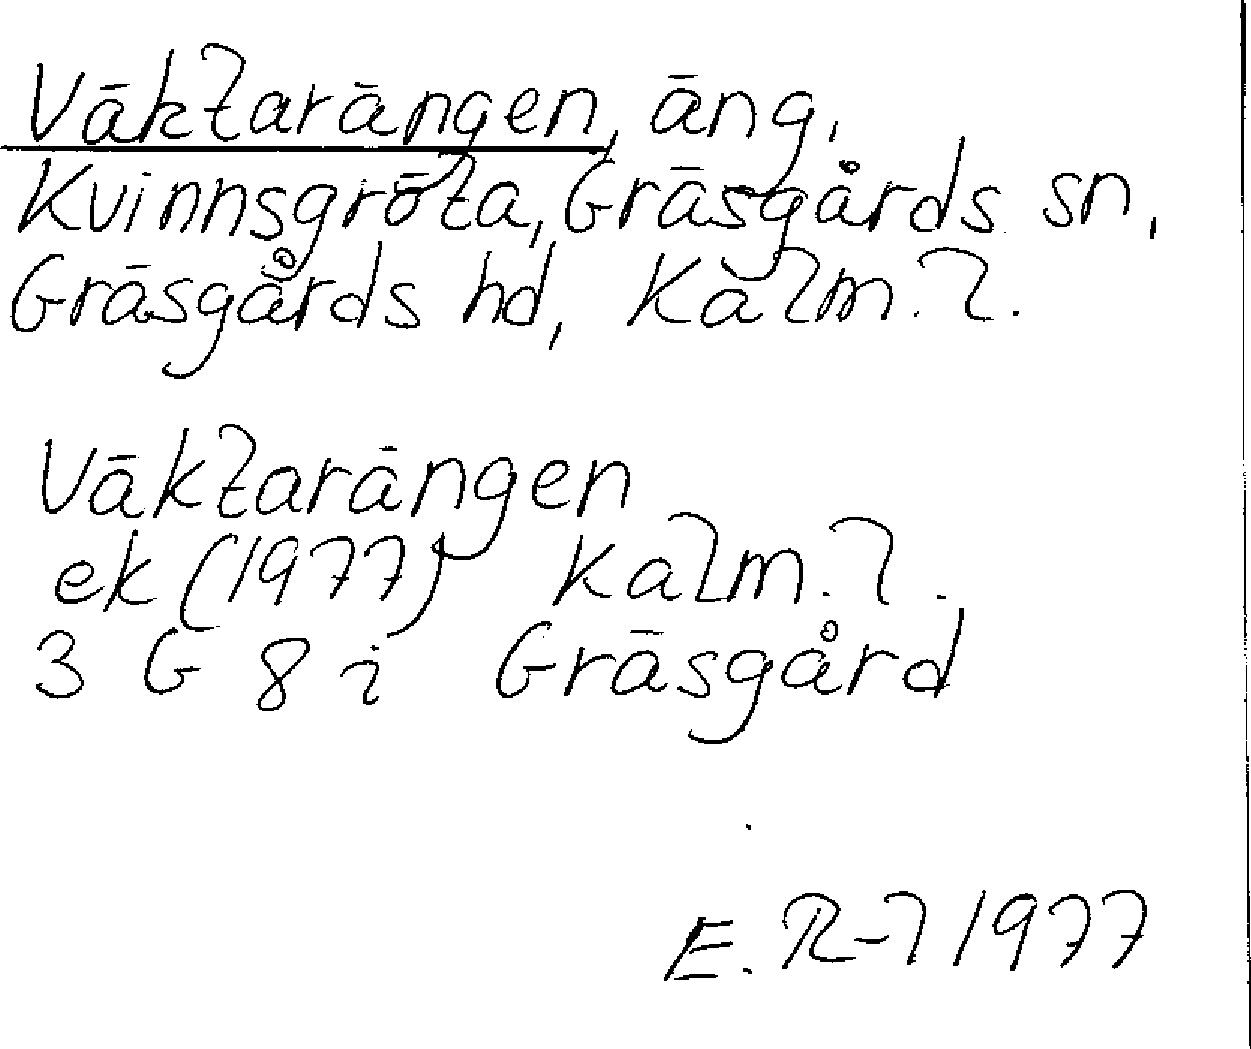 Väktarängen, äng,
Kvinnsgröta, Gräsgårds sn,
Gräsgårds hd, Kalm. l.
Väktarängen
ek (1977) Kalm. l.
3 G 8 i Gräsgård
E. R-l 1977